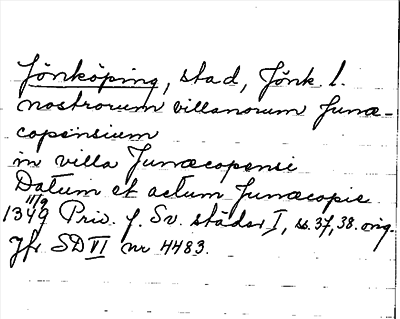 Jönköping, stad, Jönk l.
nostrorum villanorum Junæ-
copensium
in villa Junæcopensi
Datum et actum Junæcopie
11/9
1349 Priv. f. Sv. städer I, ss. 37, 38. orig.
Jfr SD VI nr 4483.